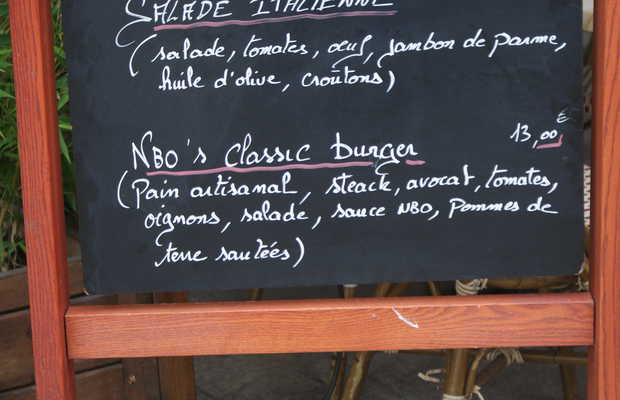 SALADE ITALIENNE
(salade, tomates, oeuf, jambon de parme,
huile d'olive, croûtons)
NBO's classic burger 13,00€
(Pain artisanal, steack, avocat, tomates,
oignons, salade, sauce NBO, Pommes de
terre sautées)